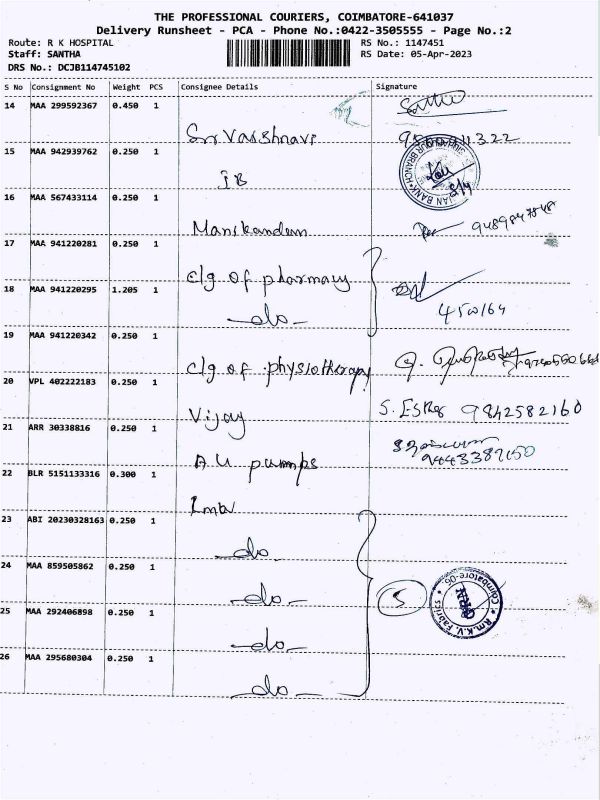 THE PROFESSIONAL COURIERS, COIMBATORE-641037
Delivery Runsheet - PCA - Phone No.:0422-3505555 - Page No.:2
Route: R K HOSPITAL
RS No.: 1147451
Staff: SANTHA
RS Date: 05-Apr-2023
DRS No.: DCJB114745102
S No Consignment No Weight PCS Consignee Details Signature
14 MAA 299592367 0.450 1
Sri Vaishnavi
15 MAA 942939762 0.250 1
IB
16 MAA 567433114 0.250 1
Manikandan
17 MAA 941220281 0.250 1
clg of pharmacy
18 MAA 941220295 1.205 1
-do-
19 MAA 941220342 0.250 1
clg of physiotherapy
20 VPL 402222183 0.250 1
Vijay
S. Esther 9842582160
21 ARR 30338816 0.250 1
A.U pumps
9443387150
22 BLR 5151133316 0.300 1
23 ABI 20230328163 0.250 1
-do-
24 MAA 859505862 0.250 1
-do-
5
Rm.K.V. Fabrics
Coimbatore-06.
25 MAA 292406898 0.250 1
-do-
26 MAA 295680304 0.250 1
-do-